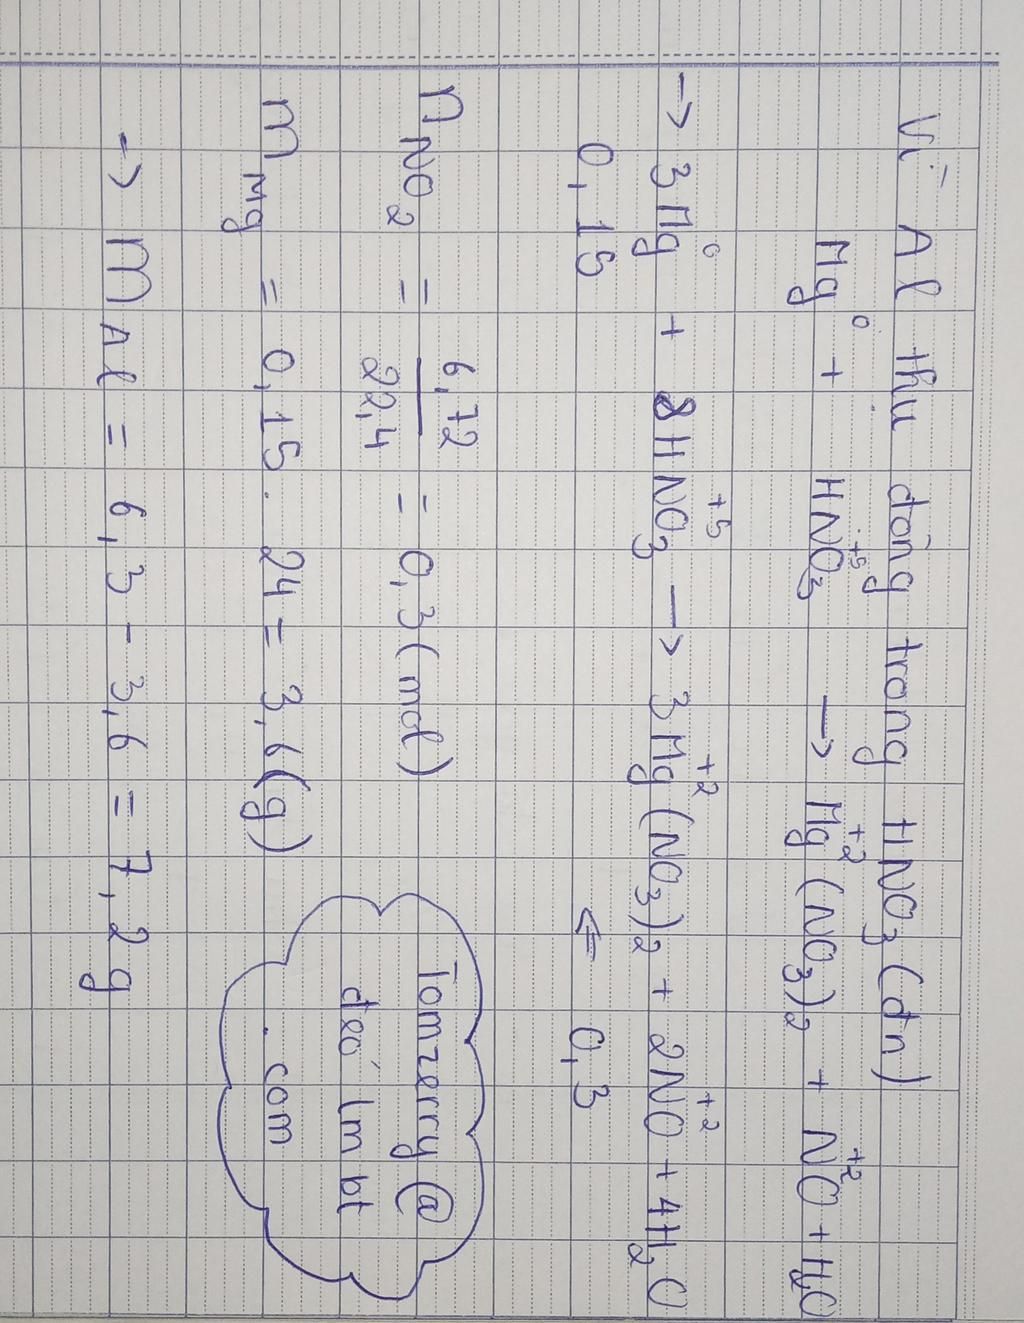 Vì Al thụ động trong HNO3 (đn)
Mg⁰ + HN⁺⁵O3 → Mg⁺²(NO3)2 + N⁺²O + H2O
→ 3Mg⁰ + 8HN⁺⁵O3 → 3Mg⁺²(NO3)2 + 2N⁺²O + 4H2O
0,15 ⇐ 0,3
nNO2 = 6,72/22,4 = 0,3 (mol)
mMg = 0,15 . 24 = 3,6 (g)
→ mAl = 6,3 - 3,6 = 7,2 g
Tomzerry @
deó lm bt
.com